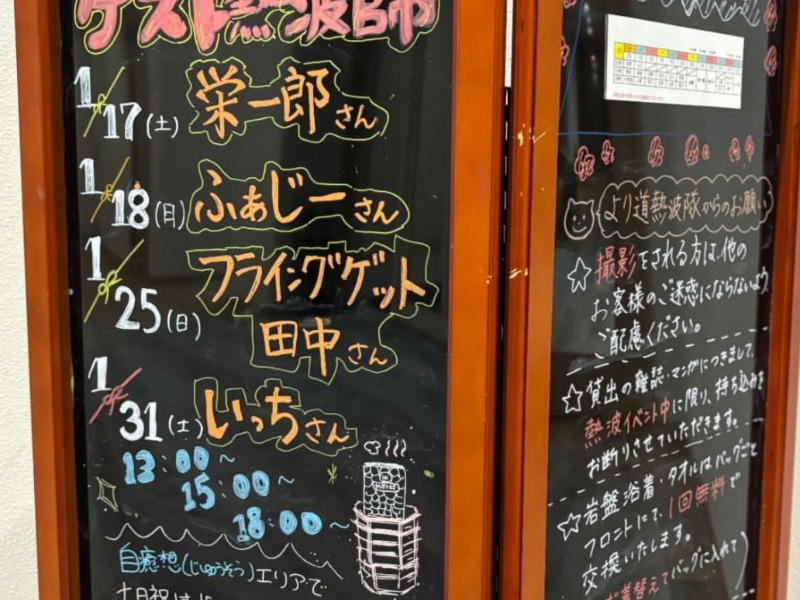 ゲスト熱波師
1/17(土) 栄一郎さん
1/18(日) ふぁじーさん
1/25(日) フライングゲット
田中さん
1/31(土) いっちさん
13:00~
15:00~
18:00~
自癒想(じゆうそう)エリアで
より道熱波隊からのお願い
☆撮影をされる方は、他の
お客様のご迷惑にならないよう
ご配慮ください。
☆貸出の雑誌・マンガにつきまして、
熱波イベント中に限り、持ち込みを
お断りさせていただきます。
☆岩盤浴着・タオルはバッグごと
フロントにて、1回無料で
交換いたします。
着替えてバッグに入れて)